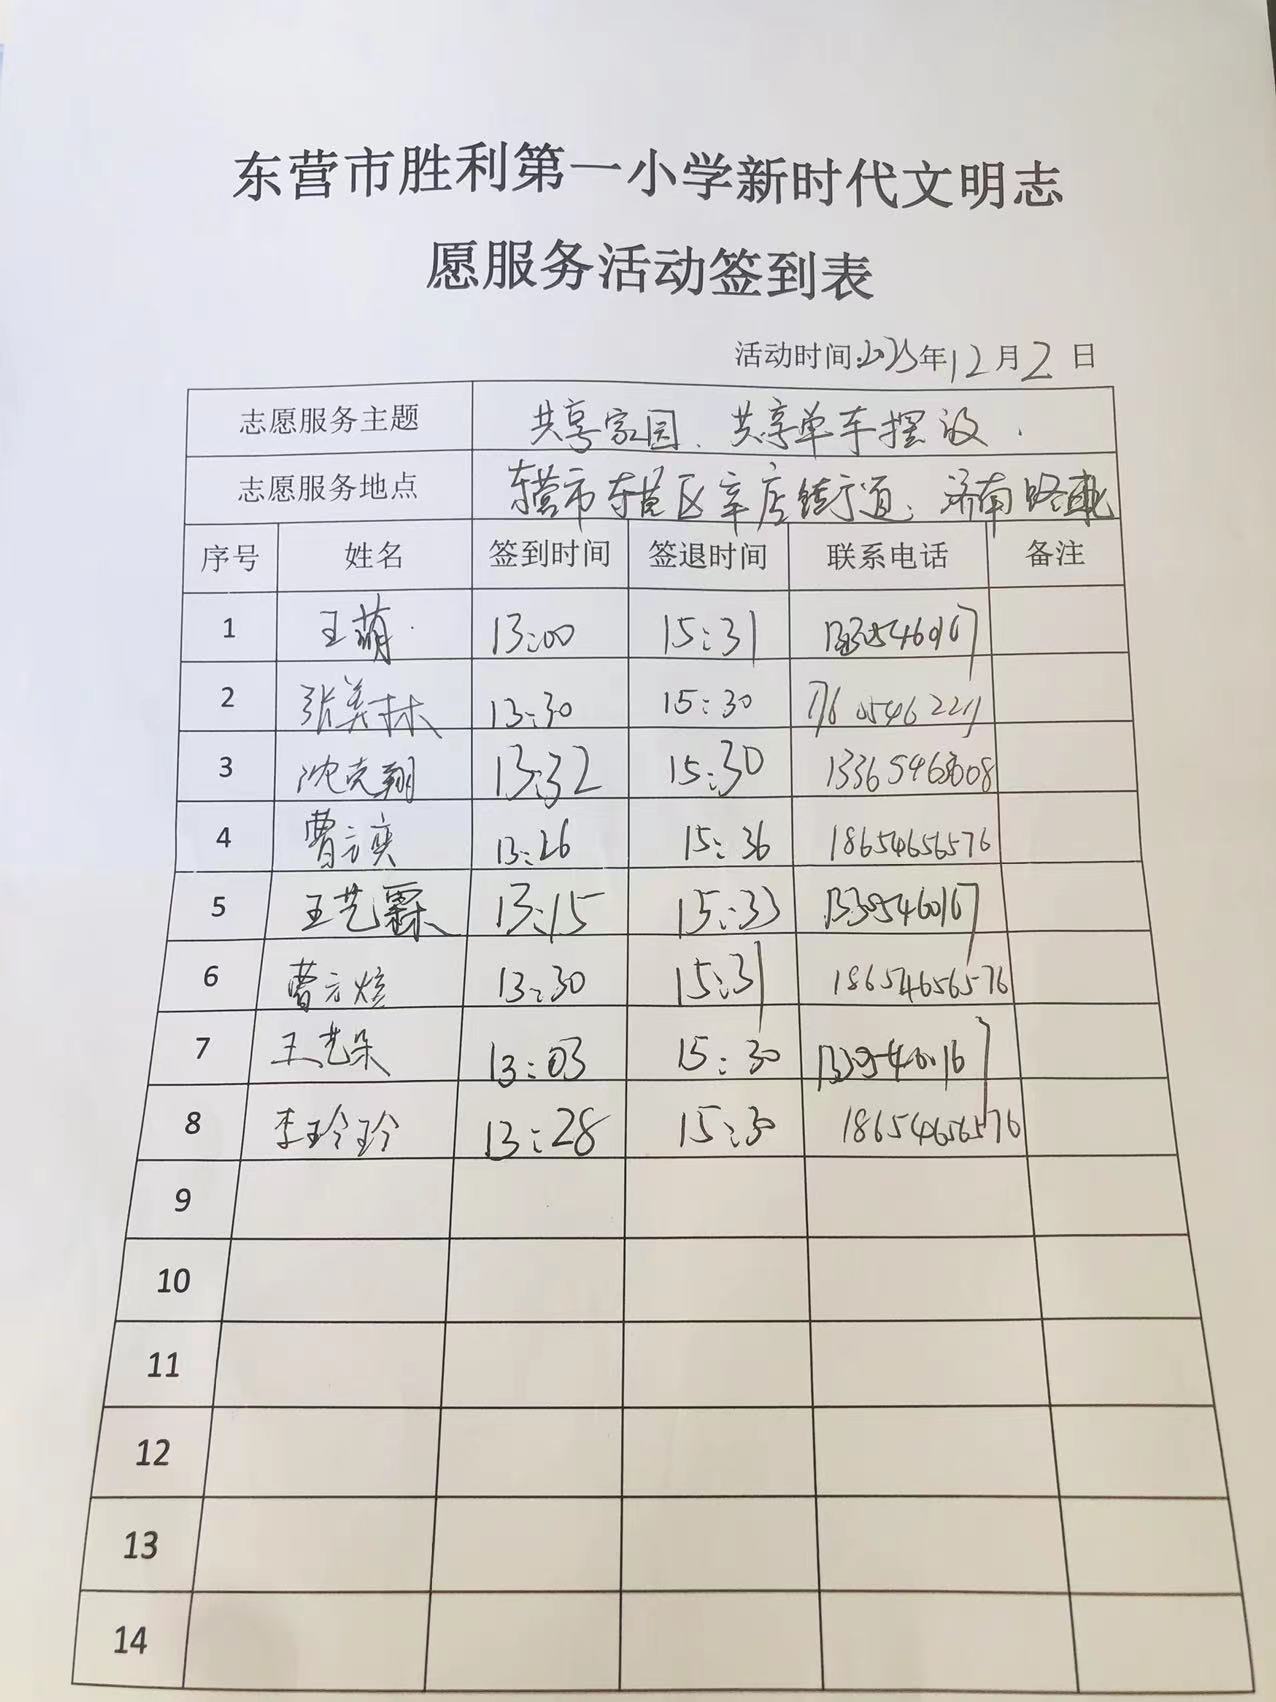 东营市胜利第一小学新时代文明志
愿服务活动签到表
活动时间:2023年12月2日
志愿服务主题 共享家园、共享单车摆设.
志愿服务地点 东营市东营区辛店街道,济南路
序号 姓名 签到时间 签退时间 联系电话 备注
1 王萌 13:00 15:31
2 张美林 13:30 15:30
3 沈克翔 13:32 15:30
4 曹方奕 13:26 15:36 18654656576
5 王艺霖 13:15 15:33
6 曹方煊 13:30 15:31 18654656576
7 王艺朵 13:03 15:30
8 李玲玲 13:28 15:30 18654656576
9
10
11
12
13
14